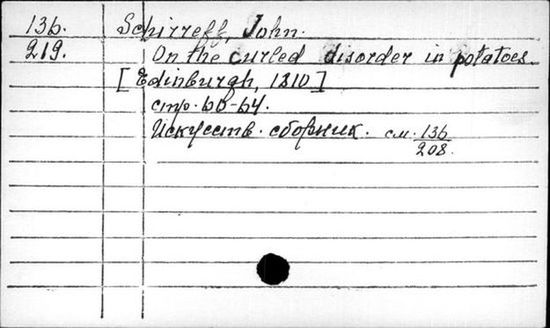 136. Schirreff, John.
219. On the curled disorder in potatoes.
[Edinburgh, 1810]
стр. 60-64.
Искусств. сборник. см. 136
208.